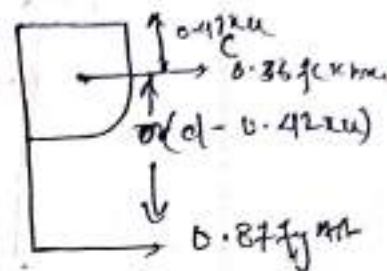 0.42xu
C
0.36 fck xu
(d - 0.42xu)
0.87 fy Ast